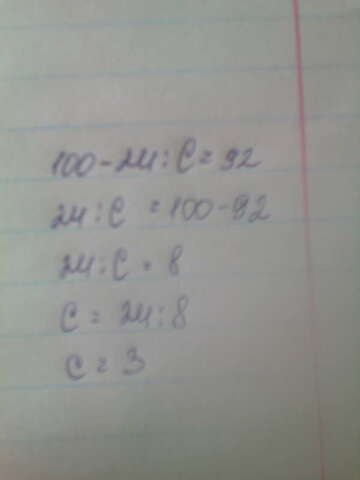 100-24:C=92
24:C =100-92
24:C=8
C=24:8
C=3